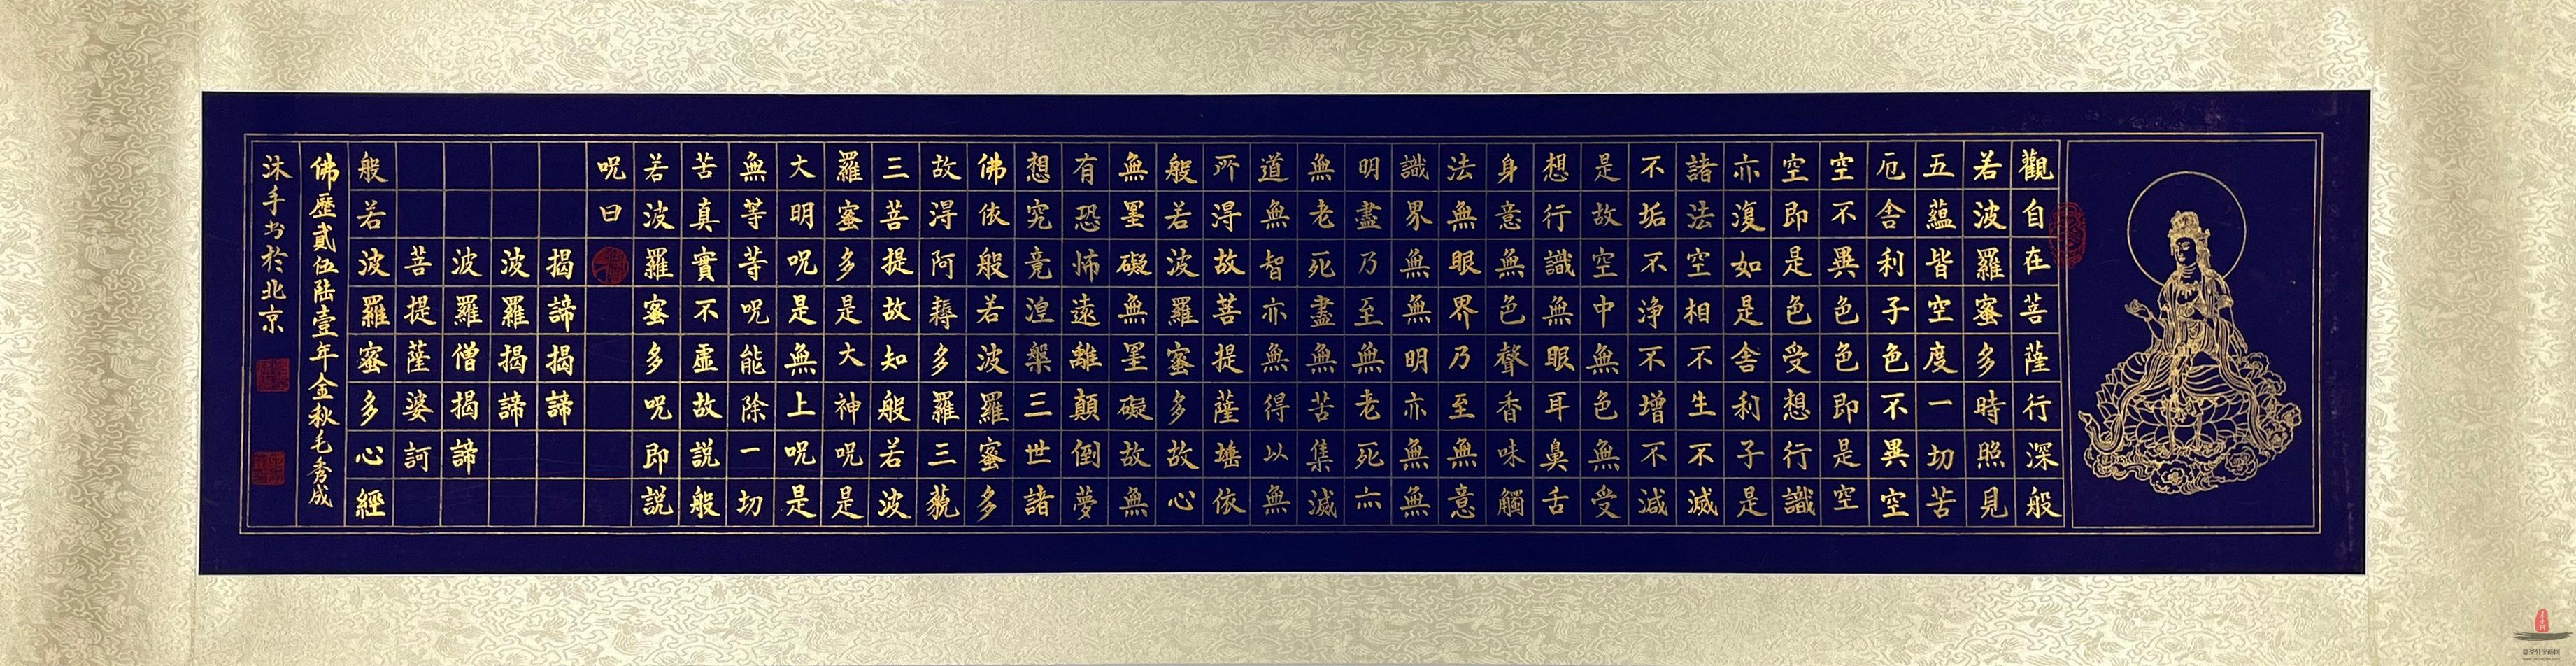 觀自在菩薩行深般
若波羅蜜多時照見
五蘊皆空度一切苦
厄舍利子色不異空
空不異色色即是空
空即是色受想行識
亦復如是舍利子是
諸法空相不生不滅
不垢不淨不增不減
是故空中無色無受
想行識無眼耳鼻舌
身意無色聲香味觸
法無眼界乃至無意
識界無無明亦無無
明盡乃至無老死亦
無老死盡無苦集滅
道無智亦無得以無
所得故菩提薩埵依
般若波羅蜜多故心
無罣礙無罣礙故無
有恐怖遠離顛倒夢
想究竟涅槃三世諸
佛依般若波羅蜜多
故得阿耨多羅三藐
三菩提故知般若波
羅蜜多是大神呪是
大明呪是無上呪是
無等等呪能除一切
苦真實不虛故說般
若波羅蜜多呪即說
呪曰
揭諦揭諦
波羅揭諦
波羅僧揭諦
菩提薩婆訶
般若波羅蜜多心經
佛歷貳伍陸壹年金秋毛秀成
沐手书於北京